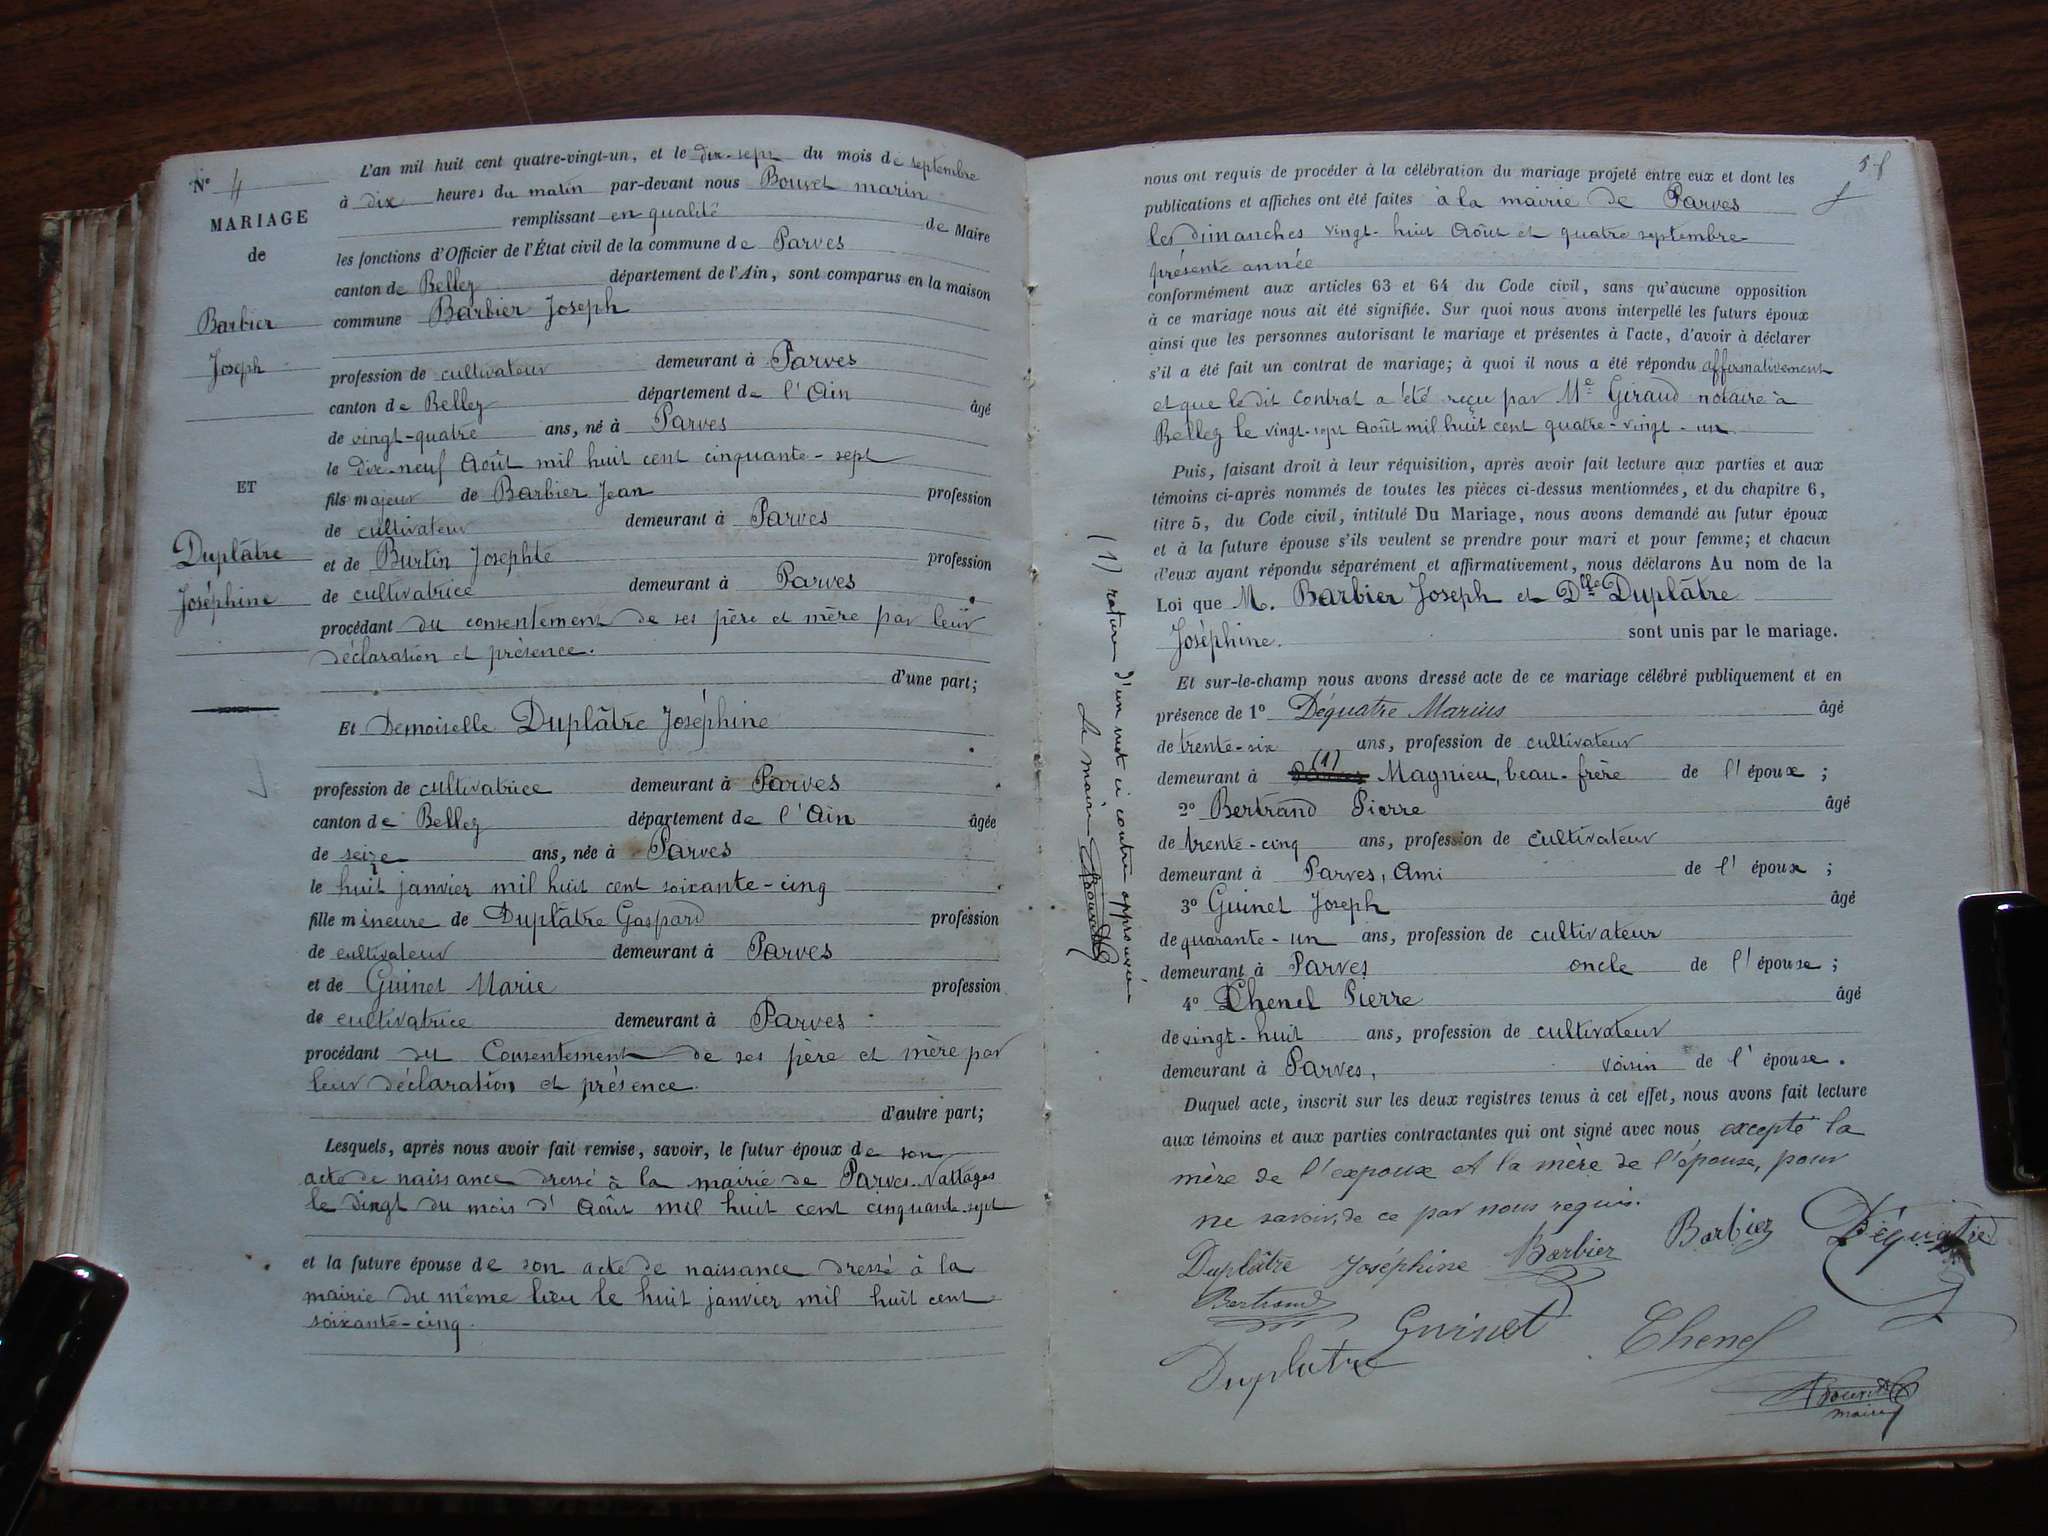 N° 4
MARIAGE
de
Barbier
Joseph
ET
Duplâtre
Joséphine
L'an mil huit cent quatre-vingt-un, et le dix-sept du mois de septembre
à dix heures du matin par-devant nous Bouvet marin
remplissant en qualité de Maire
les fonctions d'Officier de l'État civil de la commune de Parves
canton de Belley département de l'Ain, sont comparus en la maison
commune Barbier Joseph
profession de cultivateur demeurant à Parves
canton de Belley département de l'Ain âgé
de vingt-quatre ans, né à Parves
le dix-neuf Août mil huit cent cinquante-sept
fils majeur de Barbier Jean profession
de cultivateur demeurant à Parves
et de Burtin Josephte profession
de cultivatrice demeurant à Parves
procédant du consentement de ses père et mère par leur
déclaration et présence.
d'une part;
Et Demoiselle Duplâtre Joséphine
profession de cultivatrice demeurant à Parves
canton de Belley département de l'Ain âgée
de seize ans, née à Parves
le huit janvier mil huit cent soixante-cinq
fille mineure de Duplâtre Gaspard profession
de cultivateur demeurant à Parves
et de Guinet Marie profession
de cultivatrice demeurant à Parves
procédant du Consentement de ses père et mère par
leur déclaration et présence.
d'autre part;
Lesquels, après nous avoir fait remise, savoir, le futur époux de son
acte de naissance dressé à la mairie de Parves-Nattages
le vingt du mois d'Août mil huit cent cinquante-sept
et la future épouse de son acte de naissance dressé à la
mairie du même lieu le huit janvier mil huit cent
soixante-cinq.
(1) rature d'un mot ci contre approuvée
Le maire Bouvet
nous ont requis de procéder à la célébration du mariage projeté entre eux et dont les
publications et affiches ont été faites à la mairie de Parves
les dimanches vingt-huit Août et quatre septembre
présente année
conformément aux articles 63 et 64 du Code civil, sans qu'aucune opposition
à ce mariage nous ait été signifiée. Sur quoi nous avons interpellé les futurs époux
ainsi que les personnes autorisant le mariage et présentes à l'acte, d'avoir à déclarer
s'il a été fait un contrat de mariage; à quoi il nous a été répondu affirmativement
et que le dit Contrat a été reçu par Me Giraud notaire à
Belley le vingt-sept Août mil huit cent quatre-vingt-un
Puis, faisant droit à leur réquisition, après avoir fait lecture aux parties et aux
témoins ci-après nommés de toutes les pièces ci-dessus mentionnées, et du chapitre 6,
titre 5, du Code civil, intitulé Du Mariage, nous avons demandé au futur époux
et à la future épouse s'ils veulent se prendre pour mari et pour femme; et chacun
d'eux ayant répondu séparément et affirmativement, nous déclarons Au nom de la
Loi que M. Barbier Joseph et Dlle Duplâtre
Joséphine. sont unis par le mariage.
Et sur-le-champ nous avons dressé acte de ce mariage célébré publiquement et en
présence de 1° Déquatre Marius âgé
de trente-six ans, profession de cultivateur
demeurant à (1) Magnieu, beau-frère de l'époux ;
2° Bertrand Pierre âgé
de trente-cinq ans, profession de cultivateur
demeurant à Parves, Ami de l'époux ;
3° Guinet Joseph âgé
de quarante-un ans, profession de cultivateur
demeurant à Parves oncle de l'épouse ;
4° Chenel Pierre âgé
de vingt-huit ans, profession de cultivateur
demeurant à Parves, voisin de l'épouse.
Duquel acte, inscrit sur les deux registres tenus à cet effet, nous avons fait lecture
aux témoins et aux parties contractantes qui ont signé avec nous excepté la
mère de l'expoux et la mère de l'épouse, pour
ne savoir, de ce par nous requis.
Duplâtre Joséphine Barbier Barbier Déquatre
Bertrand Guinet Chenel
Duplatre
Bouvet
maire